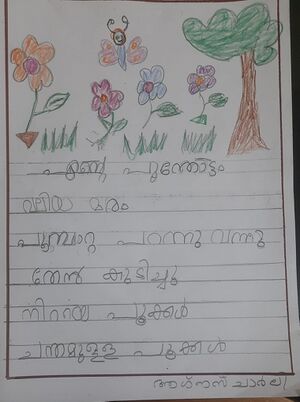 എന്റെ പൂന്തോട്ടം
വലിയ മരം
പൂമ്പാറ്റ പറന്നു വന്നു
തേൻ കുടിച്ചു
നിറയെ പൂക്കൾ
ചന്തമുള്ള പൂക്കൾ
ആഗ്നസ് ചാർലി